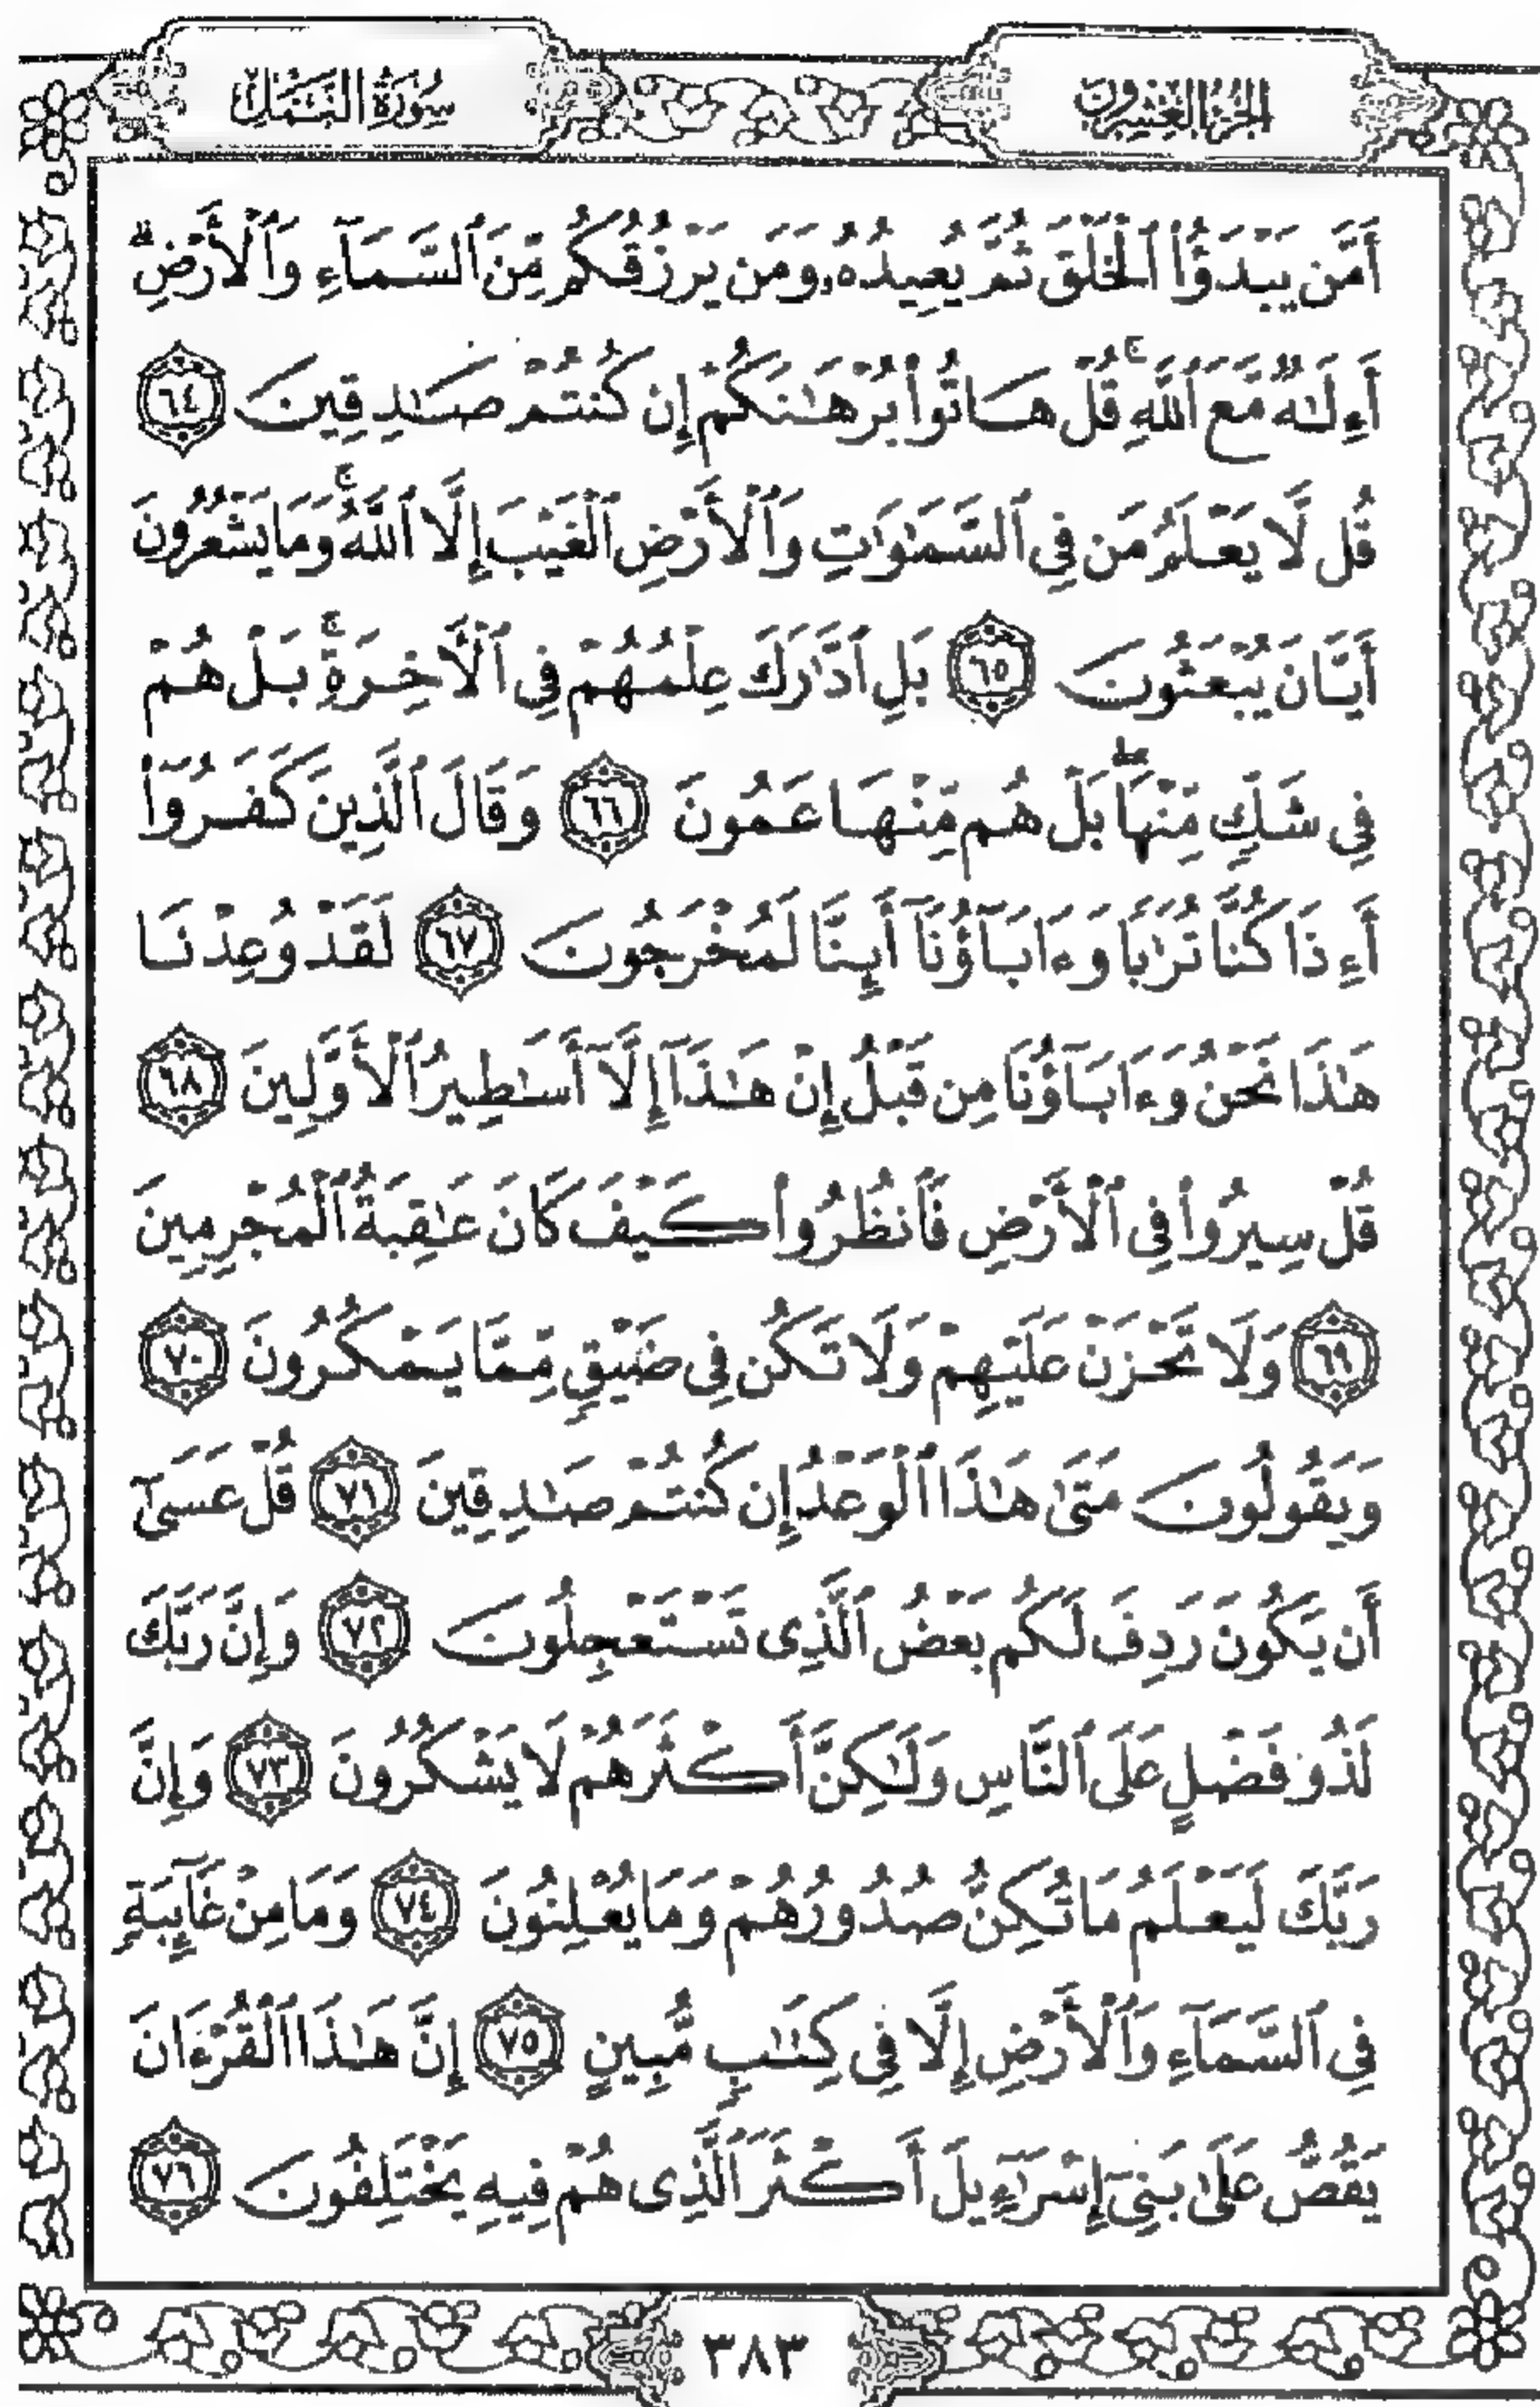 الجزء العشرون
سورة النمل
أَمَّن يَبْدَؤُا۟ ٱلْخَلْقَ ثُمَّ يُعِيدُهُۥ وَمَن يَرْزُقُكُم مِّنَ ٱلسَّمَآءِ وَٱلْأَرْضِ ۗ
أَءِلَٰهٌ مَّعَ ٱللَّهِ ۚ قُلْ هَاتُوا۟ بُرْهَٰنَكُمْ إِن كُنتُمْ صَٰدِقِينَ ٦٤
قُل لَّا يَعْلَمُ مَن فِى ٱلسَّمَٰوَٰتِ وَٱلْأَرْضِ ٱلْغَيْبَ إِلَّا ٱللَّهُ ۚ وَمَا يَشْعُرُونَ
أَيَّانَ يُبْعَثُونَ ٦٥ بَلِ ٱدَّٰرَكَ عِلْمُهُمْ فِى ٱلْأَخِرَةِ ۚ بَلْ هُمْ
فِى شَكٍّ مِّنْهَا ۖ بَلْ هُم مِّنْهَا عَمُونَ ٦٦ وَقَالَ ٱلَّذِينَ كَفَرُوٓا۟
أَءِذَا كُنَّا تُرَٰبًا وَءَابَآؤُنَآ أَئِنَّا لَمُخْرَجُونَ ٦٧ لَقَدْ وُعِدْنَا
هَٰذَا نَحْنُ وَءَابَآؤُنَا مِن قَبْلُ إِنْ هَٰذَآ إِلَّآ أَسَٰطِيرُ ٱلْأَوَّلِينَ ٦٨
قُلْ سِيرُوا۟ فِى ٱلْأَرْضِ فَٱنظُرُوا۟ كَيْفَ كَانَ عَٰقِبَةُ ٱلْمُجْرِمِينَ
٦٩ وَلَا تَحْزَنْ عَلَيْهِمْ وَلَا تَكُن فِى ضَيْقٍ مِّمَّا يَمْكُرُونَ ٧٠
وَيَقُولُونَ مَتَىٰ هَٰذَا ٱلْوَعْدُ إِن كُنتُمْ صَٰدِقِينَ ٧١ قُلْ عَسَىٰٓ
أَن يَكُونَ رَدِفَ لَكُم بَعْضُ ٱلَّذِى تَسْتَعْجِلُونَ ٧٢ وَإِنَّ رَبَّكَ
لَذُو فَضْلٍ عَلَى ٱلنَّاسِ وَلَٰكِنَّ أَكْثَرَهُمْ لَا يَشْكُرُونَ ٧٣ وَإِنَّ
رَبَّكَ لَيَعْلَمُ مَا تُكِنُّ صُدُورُهُمْ وَمَا يُعْلِنُونَ ٧٤ وَمَا مِنْ غَآئِبَةٍ
فِى ٱلسَّمَآءِ وَٱلْأَرْضِ إِلَّا فِى كِتَٰبٍ مُّبِينٍ ٧٥ إِنَّ هَٰذَا ٱلْقُرْءَانَ
يَقُصُّ عَلَىٰ بَنِىٓ إِسْرَٰٓءِيلَ أَكْثَرَ ٱلَّذِى هُمْ فِيهِ يَخْتَلِفُونَ ٧٦
٣٨٣